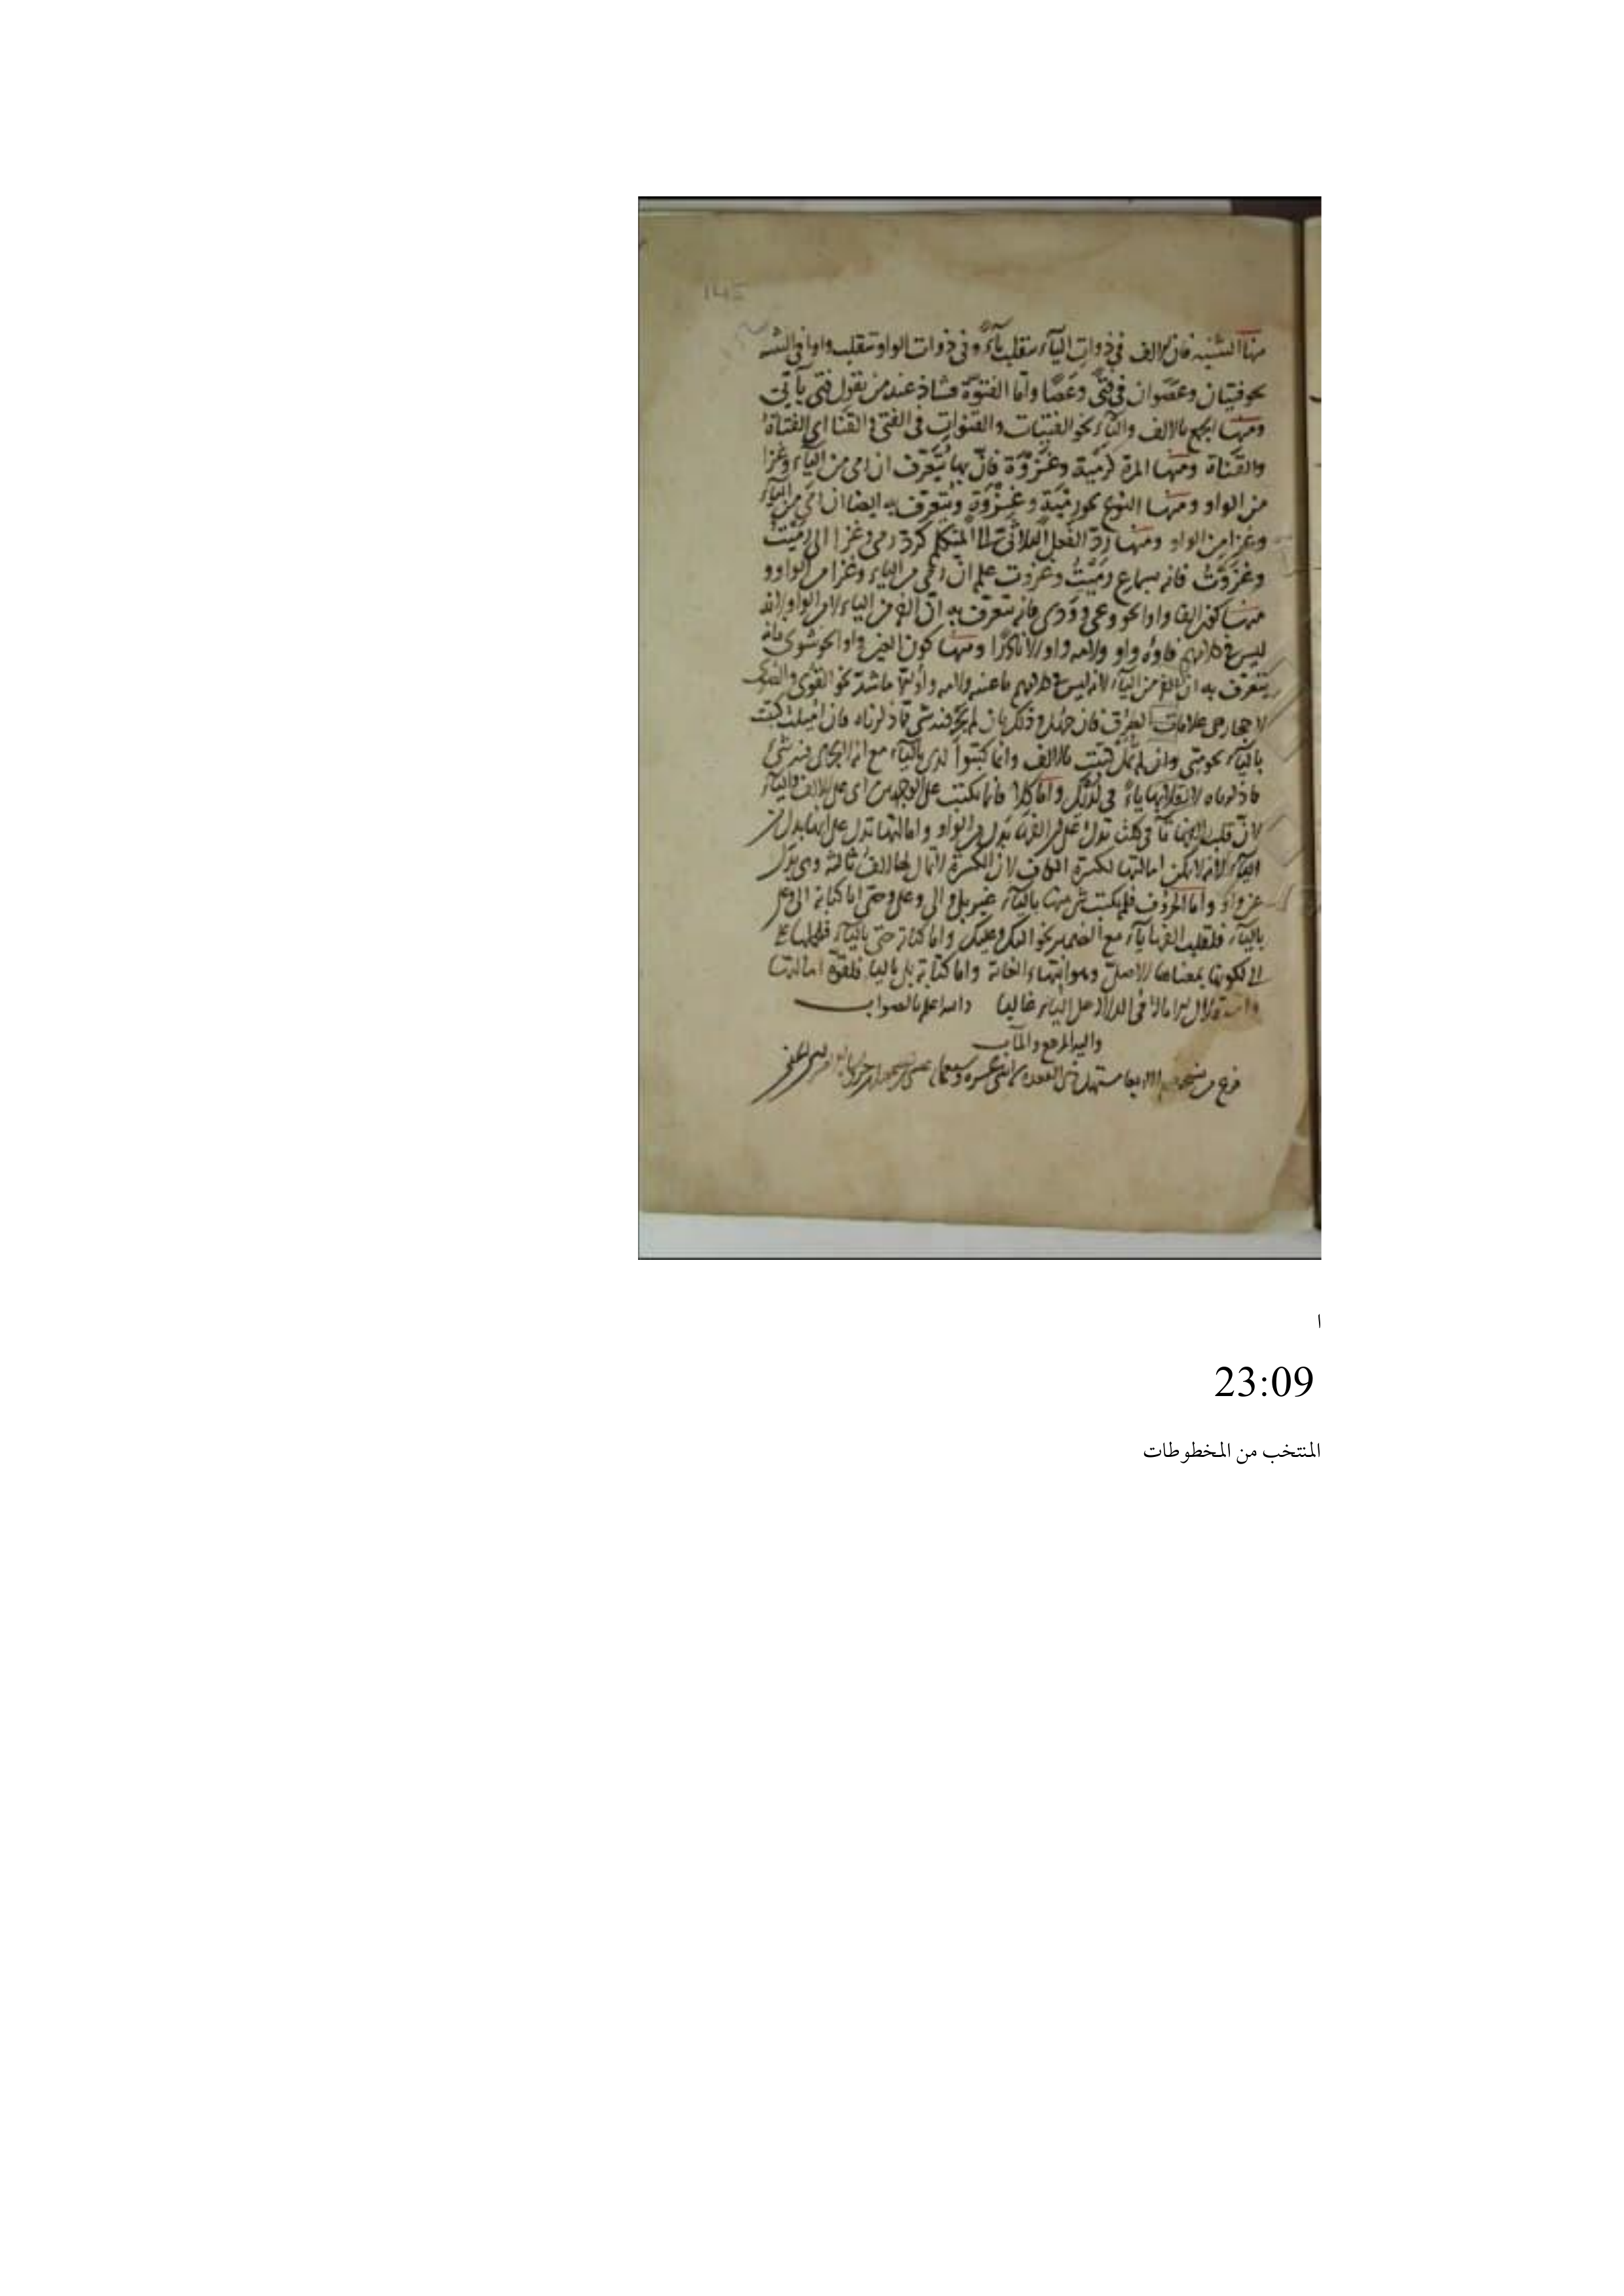 منها التثنية فان الالف في ذوات الياء تنقلب ياءً وفي ذوات الواو تنقلب واوا في التثنية
نحو فتيان وعصوان في فتًى وعَصًا واما الفتوّة فشاذ عند من يقول فتى يآئى
ومنها الجمع بالالف والتاء نحو الفتيات والقنوات في الفتى و القنا اى الفتاة
والقناة ومنها المرة كرَمْيَة وغَزْوَة فانّ بها يتعرف ان رمى من الياء وغزا
من الواو ومنها النوع نحو رِمْيَة وغِزْوَة ويتعرف به ايضا ان رمى من الياء
وغزا من الواو ومنها ردّ الفعل الثلاثى الى المتكلم كرد رمى وغزا الى رَمَيْتُ
وغَزَوْتُ فانه بسماع رمَيْتُ وغزوت علم انّ رمى من الياء وغزا من الواو و
منها كون الفا واوا نحو وعى وودى فانه يتعرف به انّ الفه من الياء لا من الواو لانه
ليس في كلامهم فاؤه واو ولامه واو الا نادرًا ومنها كون العين واوا نحو شوى فانه
يتعرف به ان الفه من الياء لانه ليس في كلامهم ما عينه ولامه واو الا ما شذ نحو القوى و
علامات الطرق فان جهل وذلك بان لم يجر فيه شى مما ذكرناه فان اميلت كتبت
بالياء نحو متى وان لم تمل كتبت بالالف وانما كتبوا لدى بالياء مع انه لم يجر فيه شئ
مما ذكرناه لانقلابها ياءً في لديك واما كلا فانما يكتب على الوجهين اى على الالف والياء
لان قلب الفها تآ في كلتا تدل على ان الفها بدل من الواو وامالتها تدل على انها بدل من
الياء لانه لا يمكن امالتها لكسرة الكاف لان الكسرة لا تمال لها الف ثالثة وهى بدل
عن واو واما الحروف فلم يكتب شئ منها بالياء غير بلى والى وعلى وحتى اما كتابة الى وعلى
بالياء فلقلب الفهما ياء مع الضمير نحو اليك وعليك واما كتابة حتى بالياء فلحملها على
الى لكونها بمعناها الاصلى وهو انتهاء الغاية واما كتابة بلى بالياء فلقوّة امالتها
غالبا والله اعلم بالصواب
واليه المرجع والمآب
فرغ من مستهل ذى القعده
ا
23:09
المنتخب من المخطوطات